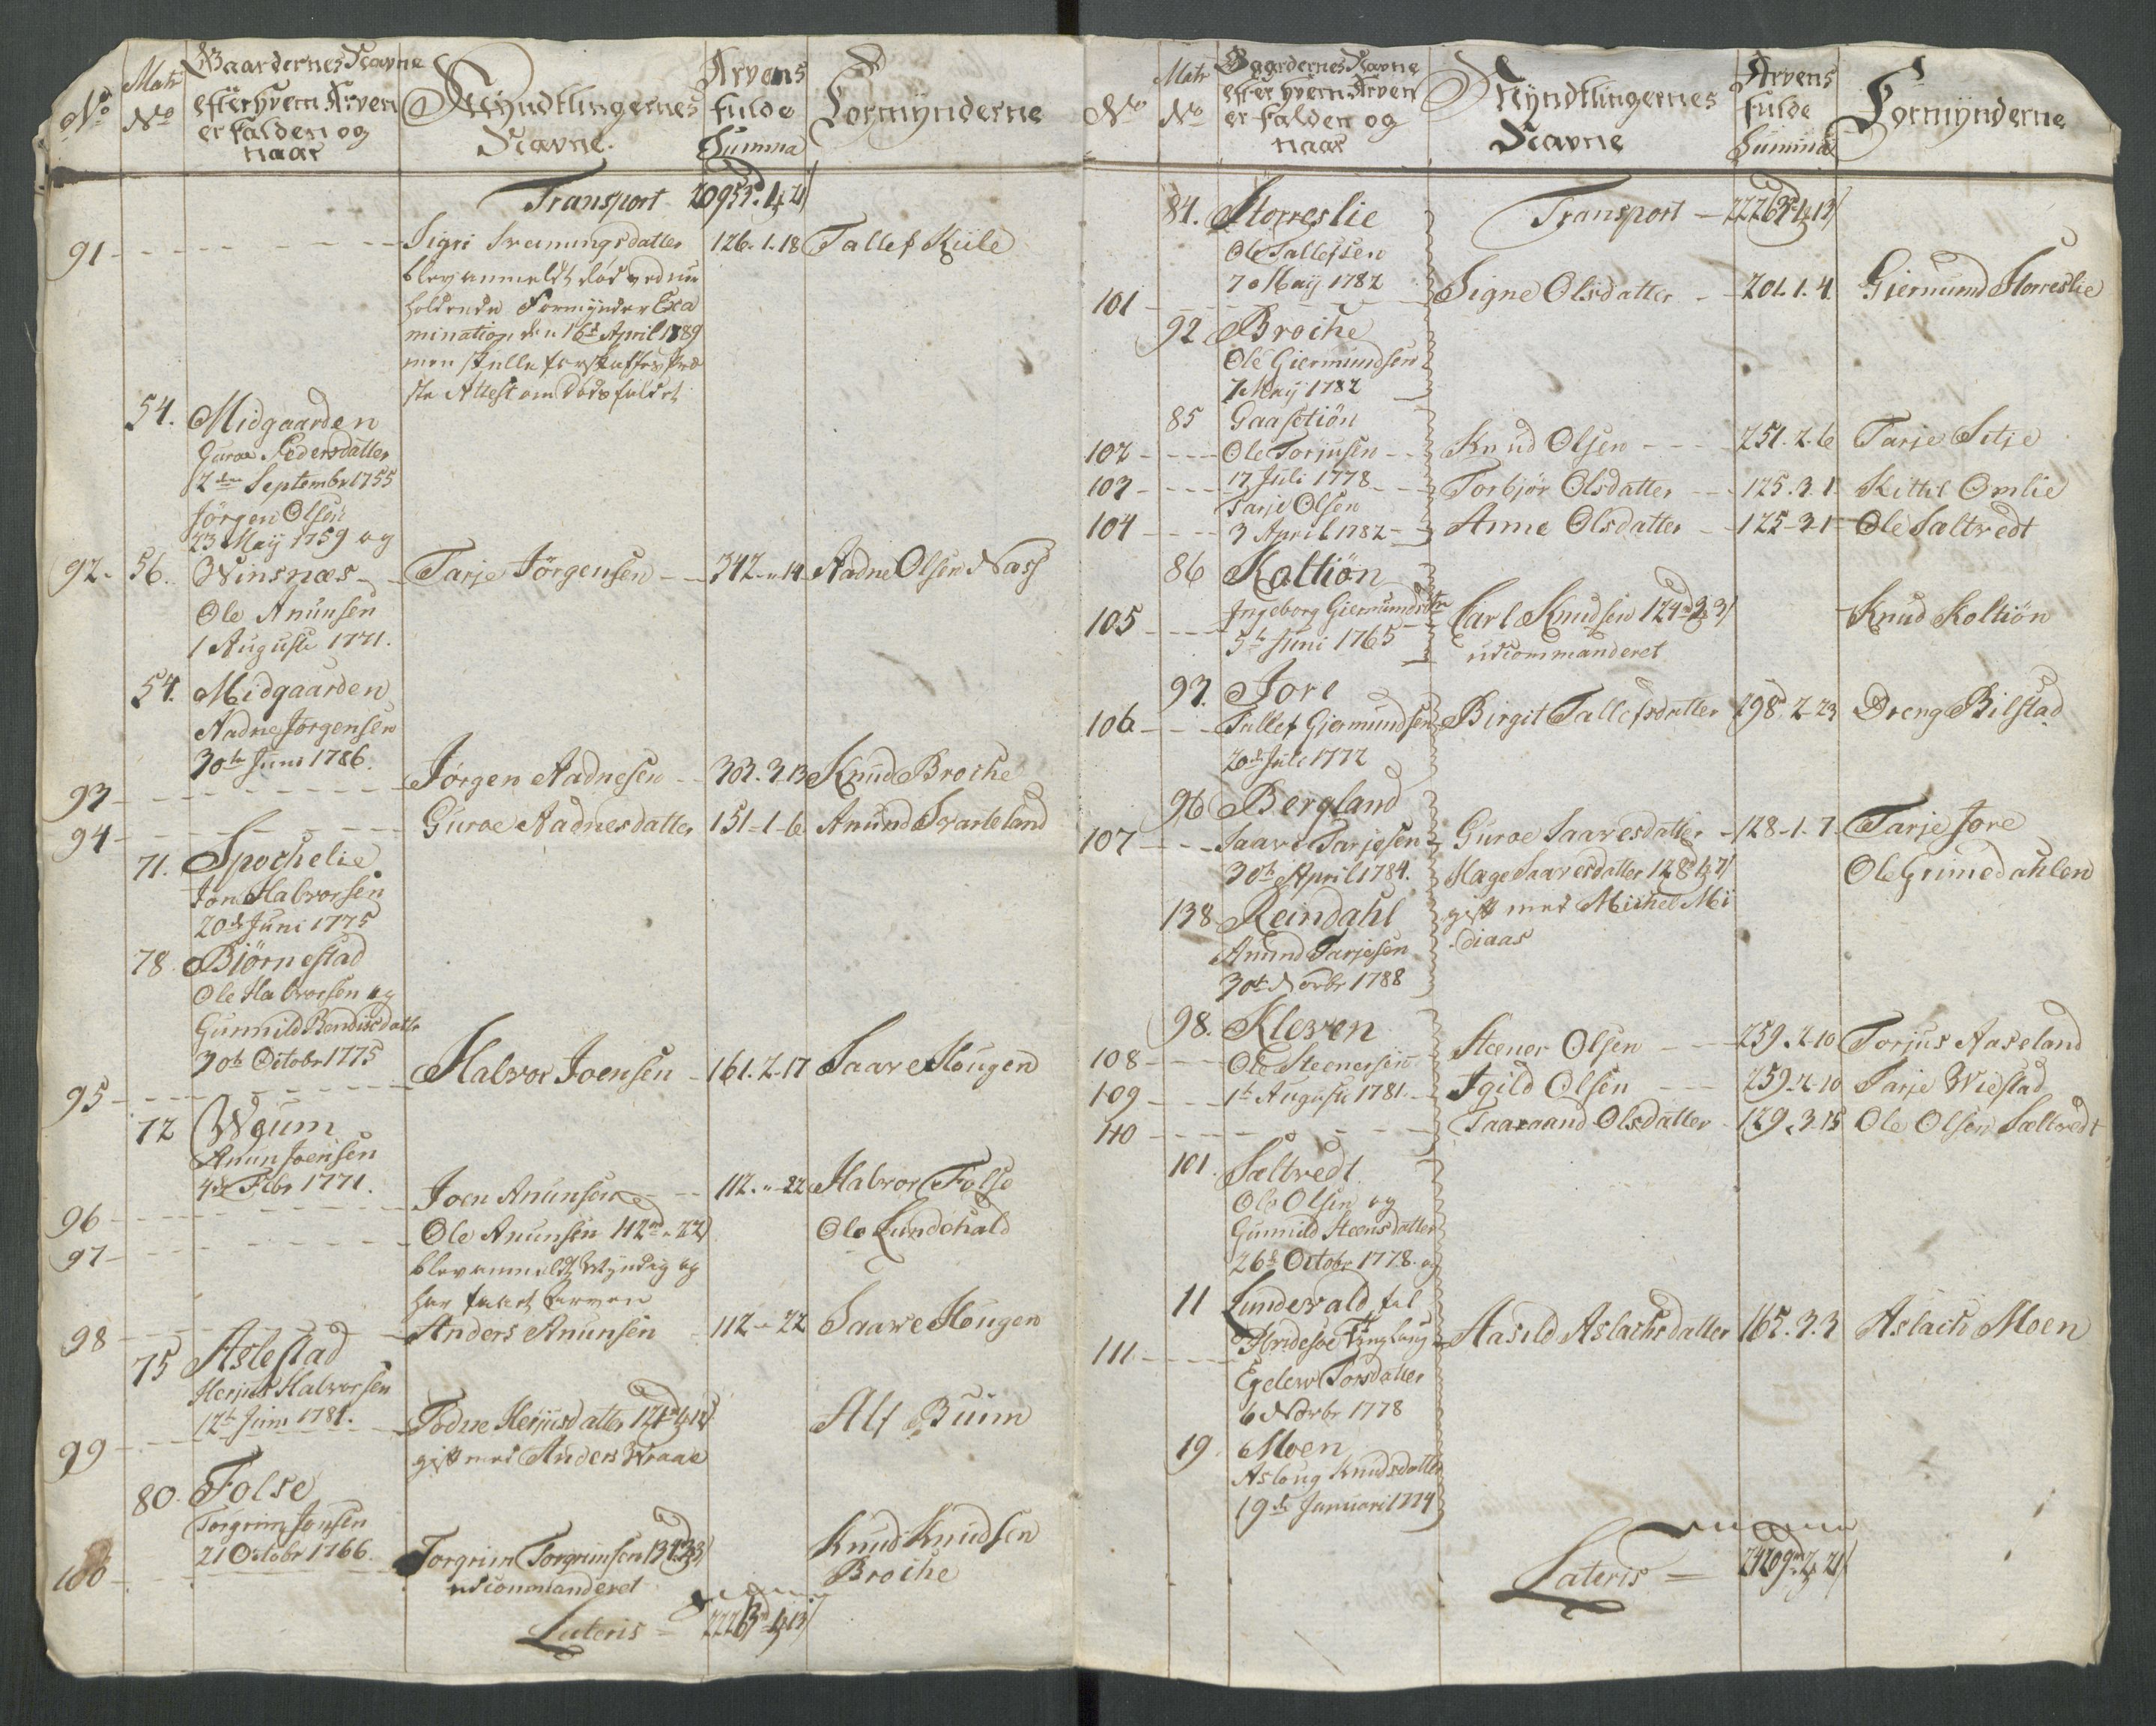 No
Matr No
Gaardernes Navne
efter hvem Arven
er falden og
naar
Myndtlingernes
Navne.
Arvens
fulde
Summa
Formynderne
Transport 20955. 4. 21
91 Sigri Sveinungsdatter 126. 1. 18 Tallef Kiile
blev anmeldt død ved nu
holdende Formynder Exa
mination den 16de April 1789
men skulle forskaffes Præ
ste Attest om dødsfaldet
54. Midgaarden
Guroe Pedersdatter
2den Septembr 1755
Jörgen Olsen
23 Maij 1759 og
92. 56. Winsnæs Tarje Jörgensen 342. " 14 Aadne Olsen Næss
Ole Anunsen
1 Auguste 1771.
54. Midgaarden
Aadne Jörgensen
30te Juni 1786.
93 Jörgen Aadnesen 303. 3. 13 Knud Broche
94 Guroe Aadnesdatter 151-1-6 Anund Svarteland
71. Spochelie
Jon Halvorsen
20de Juni 1775
78. Biörnestad
Ole Halvorsen og
Gunnild Bendicsdatter
30te Octobr 1775
95 Halvor Joensen 161. 2. 17 Saave Hougen
72 Weum
Anun Joensen
4de Febr 1771.
96 Joen Anunsen 112. " 22 Halvor Folse
97 Ole Anunsen 112 " 22 Ole Lundevald
blev anmeldt Myndig og
har faaet Arven
98 Anders Anunsen 112 " 22 Saave Hougen
75 Aslestad
Herjus Halvorsen
12te Juni 1781.
99 Todne Herjusdatter 121. 4. 18 Alf Buun
gift med Anders Vraae
80. Folse
Torgrim Jonsen
21 Octobr 1766.
100 Torgrim Torgrimsen 134. 3. 3 Knud Knudsen
udcommanderet Broche
Lateris = 22263. 4. 13
No
Matr No
Gaardernes Navne
efter hvem Arven
er falden og
naar
Myndtlingernes
Navne
Arvens
fulde
Summa
Formynderne
84. Storreslie Transport 22263. 4. 13
Ole Tallefsen
7 Maij 1782
101 Signe Olsdatter 201. 1. 4. Giermund Storreslie
92 Broche
Ole Giermundsen
7 Maij 1782
85 Gaasetiön
102 Ole Torjusen Knud Olsen 251. 2. 6 Tarje Sitje
17 Juli 1778
103 Torbjör Olsdatter 125. 3. 1 Kittil Omlie
Tarje Olsen
104 3 April 1782 Anne Olsdatter 125-3-1 Ole Saltvedt
86 Koltiön
105 Ingeborg Giermundsdtr Carl Knudsen 124. 3. 3 Knud Koltiön
5te Juni 1765 udcommanderet
93. Jore
106 Tallef Gjermundsen Birgit Tallefsdatter 298. 2. 23 Dreng Bilstad
20de Juli 1772
96 Bergland
107 Saave Tarjesen Guroe Saavesdatter 128. 1. 7. Tarje Jore
30te April 1784. Hage Saavesdatter 128. 1. 7 Ole Grimedahlen
138 Reindahl gift med Michel Mi
Anund Tarjesen diaas
30te Novbr 1788
98. Kleven
108 Ole Steenersen Steener Olsen 259. 2. 10 Torjus Aaseland
109 1te Auguste 1781. Igild Olsen 259. 2. 10 Tarje Wiestad
110 Taaraand Olsdatter 129. 3. 15 Ole Olsen Sæltvedt
101. Sæltvedt
Ole Olsen og
Gunnild Steensdatter
26de Octobr 1778. og
11 Lundevald fal
111 Hvidesöe Tinglaug Aasild Aslachsdatter 165. 3. 3 Aslach Moen
Egelew Torsdatter
6 Novbr 1778
19. Moen
Asloug Knudsdatter
19de Januari 1774
Lateris = 24209. 2. 21